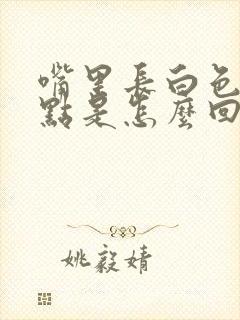 嘴里長白色
點是怎麼回
姚毅婧